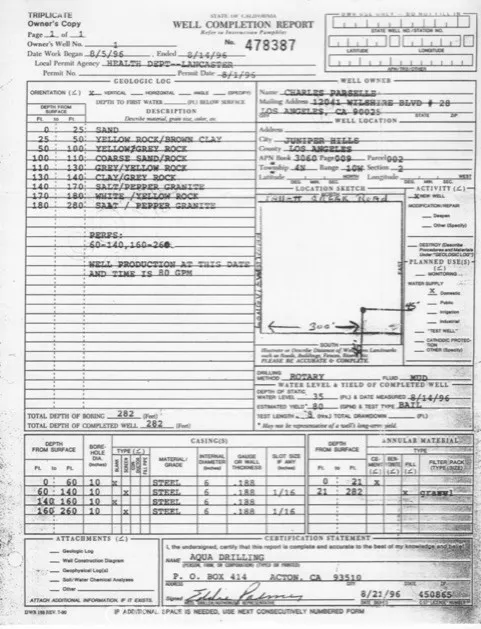 TRIPLICATE
Owner's Copy
STATE OF CALIFORNIA
WELL COMPLETION REPORT
Refer to Instruction Pamphlet
Page 1 of 1
Owner's Well No. 1
No. 478387
Date Work Began 8/5/96 , Ended 8/14/96
Local Permit Agency HEALTH DEPT--LANCASTER
Permit No. Permit Date 8/1/96
STATE WELL NO./STATION NO.
LATITUDE LONGITUDE
APN/TRS/OTHER
GEOLOGIC LOG
ORIENTATION (∠) X VERTICAL HORIZONTAL ANGLE (SPECIFY)
DEPTH TO FIRST WATER (Ft.) BELOW SURFACE
DEPTH FROM SURFACE
Ft. to Ft.
DESCRIPTION
Describe material, grain size, color, etc.
0 25 SAND
25 50 YELLOW ROCK/BROWN CLAY
50 100 YELLOW/GREY ROCK
100 110 COARSE SAND/ROCK
110 130 GREY/YELLOW ROCK
130 140 CLAY/GREY ROCK
140 170 SALT/PEPPER GRANITE
170 180 WHITE /YELLOW ROCK
180 280 SALT / PEPPER GRANITE
PERFS:
60-140,160-260
WELL PRODUCTION AT THIS DATE
AND TIME IS 80 GPM
TOTAL DEPTH OF BORING 282 (Feet)
TOTAL DEPTH OF COMPLETED WELL 282 (Feet)
WELL OWNER
Name CHARLES PARSELLS
Mailing Address 12041 WILSHIRE BLVD # 28
LOS ANGELES, CA 90025
CITY STATE ZIP
WELL LOCATION
Address
City JUNIPER HILLS
County LOS ANGELES
APN Book 3060 Page 009 Parcel 002
Township 4N Range 10W Section 2
Latitude NORTH Longitude WEST
DEG. MIN. SEC. DEG. MIN. SEC.
LOCATION SKETCH
NORTH
EAST
300'
SOUTH
Illustrate or Describe Distance of Well from Landmarks
such as Roads, Buildings, Fences, Rivers, etc.
PLEASE BE ACCURATE & COMPLETE.
ACTIVITY (∠)
X NEW WELL
MODIFICATION/REPAIR
Deepen
Other (Specify)
DESTROY (Describe Procedures and Materials Under "GEOLOGIC LOG")
PLANNED USE(S) (∠)
MONITORING
WATER SUPPLY
X Domestic
Public
Irrigation
Industrial
"TEST WELL"
CATHODIC PROTECTION
OTHER (Specify)
DRILLING METHOD ROTARY FLUID MUD
WATER LEVEL & YIELD OF COMPLETED WELL
DEPTH OF STATIC WATER LEVEL 35 (Ft.) & DATE MEASURED 8/14/96
ESTIMATED YIELD* 80 (GPM) & TEST TYPE BAIL
TEST LENGTH (Hrs.) TOTAL DRAWDOWN (Ft.)
* May not be representative of a well's long-term yield.
CASING(S)
DEPTH FROM SURFACE
Ft. to Ft.
BORE-HOLE DIA. (Inches)
TYPE (∠)
BLANK SCREEN
FILL PIPE
MATERIAL/ GRADE
INTERNAL DIAMETER (Inches)
GAUGE OR WALL THICKNESS
SLOT SIZE IF ANY (Inches)
0 60 10 x STEEL 6 .188
60 140 10 x STEEL 6 .188 1/16
140 160 10 x STEEL 6 .188
160 260 10 x STEEL 6 .188 1/16
ANNULAR MATERIAL
DEPTH FROM SURFACE
Ft. to Ft.
TYPE
CEMENT (∠) BENTONITE (∠) FILL (∠) FILTER PACK (TYPE/SIZE)
0 21 x
21 282 x gravel
ATTACHMENTS (∠)
Geologic Log
Well Construction Diagram
Geophysical Log(s)
Soil/Water Chemical Analyses
Other
ATTACH ADDITIONAL INFORMATION, IF IT EXISTS.
CERTIFICATION STATEMENT
I, the undersigned, certify that this report is complete and accurate to the best of my knowledge and belief.
NAME AQUA DRILLING
(PERSON, FIRM, OR CORPORATION) (TYPED OR PRINTED)
P. O. BOX 414 ACTON, CA 93510
ADDRESS CITY STATE ZIP
Signed Eddie Palmer 8/21/96 450865
WELL DRILLER/AUTHORIZED REPRESENTATIVE DATE SIGNED C-57 LICENSE NUMBER
DWR 188 REV. 7-90
IF ADDITIONAL SPACE IS NEEDED, USE NEXT CONSECUTIVELY NUMBERED FORM